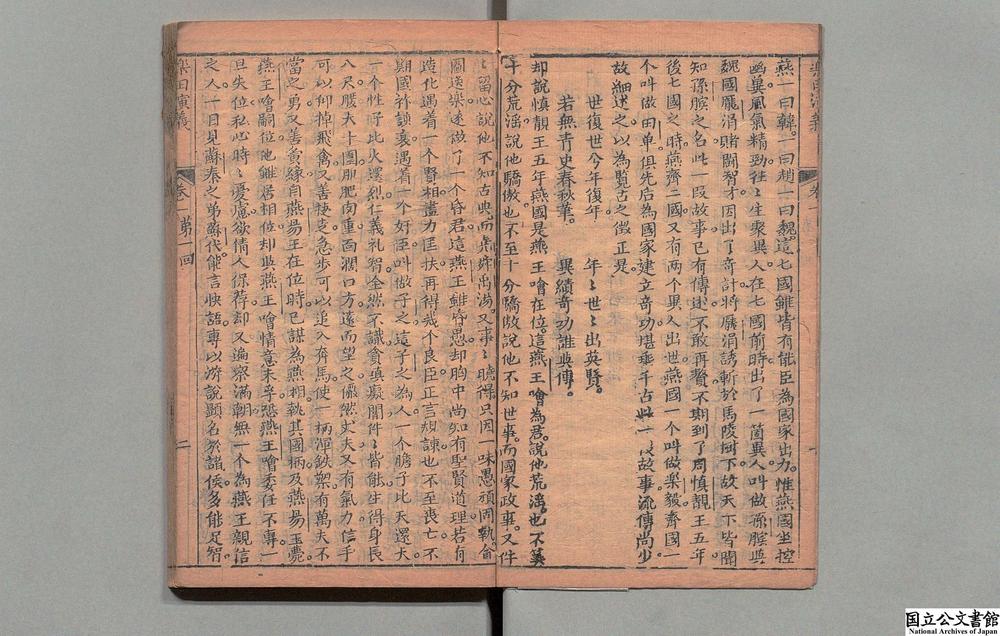 燕一曰韓。一曰趙一曰魏。這七國雖皆有能臣為國家出力。惟燕國坐控
幽冀風氣精勁往〻生聚異人在七國前時出了一箇異人叫做孫臏與
魏國龐涓賭鬪智才因出了奇計將龐涓誘斬於馬陵道下故天下皆聞
知孫臏之名此一段故事已有傳述不敢再贅不期到了周慎靚王五年
後七國之時燕齊二國又有兩个異人出世燕國一个叫做樂毅齊國一
个叫做田单俱先后為國家建立奇功堪垂千古此一段故事流傳尚少
故細述之以為覧古之徴正是
世復世今年復年　年〻世〻出英賢。
若無青史春秋筆。　異績奇功誰與傳。
却說慎靚王五年燕國是燕王噲在位。這燕王噲為君。說他荒滛也不筭
十分荒滛說他驕傲也不至十分驕傲說他不知世事。而國家政事。又件
〻留心說他不知古典。而堯舜禹湯。又事〻曉得只因一味愚頑固執。俞
圖逸樂遂做了一个昏君這燕王雖昏愚却胸中尚知有聖賢道理若有
造化遇着一个賢相盡力匡扶再得幾个良臣正言規諫也不至喪亡不
期國祚該衰遇着一个奸臣叫做子之這子之為人一个膽子比天還大
一个性子比火還烈仁義礼智全然不識貪嗔癡闇件〻皆能生得身長
八尺腰大十圍肌肥肉重面濶口方遠而望之儼然丈夫又有氣力信手
可以仰掉飛禽又善捷走急歩可以追入奔馬使一柄渾鉄槊有萬夫不
當之勇又善夤緣自燕昜王在位時已謀為燕相執其國柄及燕昜王薨
燕王噲嗣位他雖居相位却與燕王噲情意未孚恐燕王噲委任不專一
旦失位私心時〻憂慮欲倩人保荐却又遍察滿朝無一个為燕王親信
之人一日見蘇秦之弟蘇代能言快語專以游說顕名於諸侯多能足智
樂田演義
卷一第一回
二
国立公文書館
National Archives of Japan